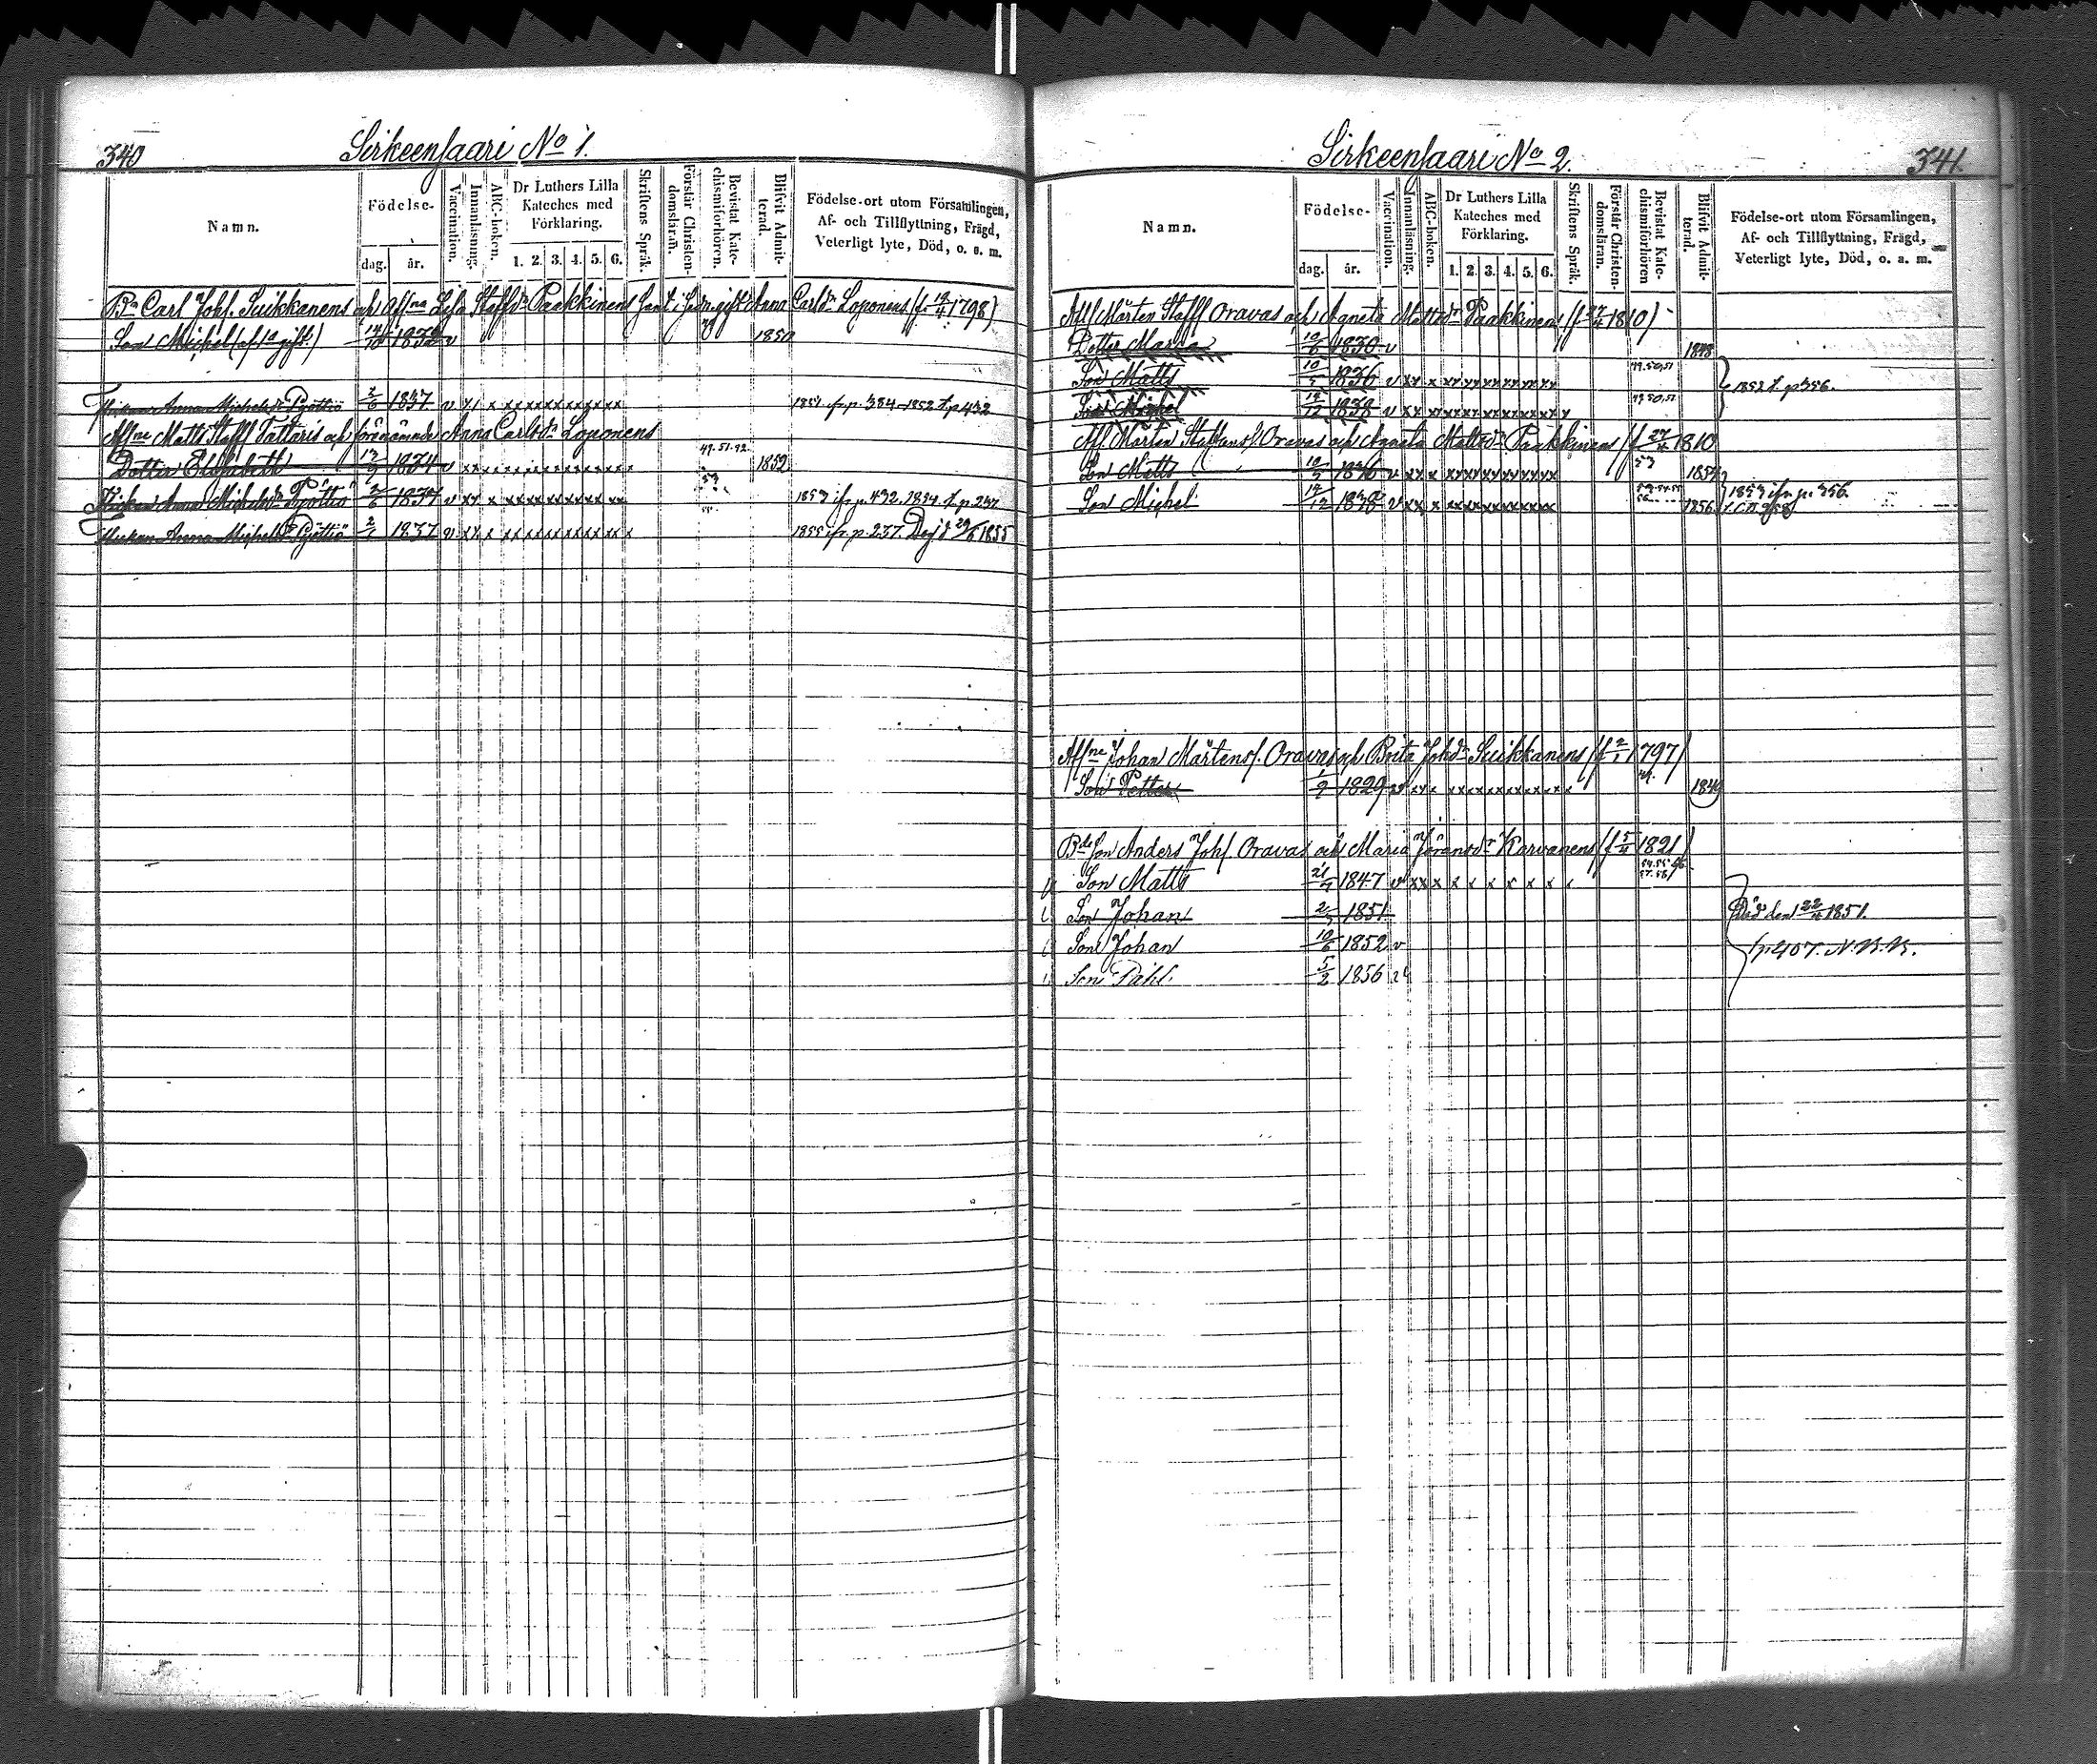 340
Sirkeensaari No 1.
Namn.
Födelse-
dag.
år.
Vaccination.
Innanläsning.
ABC-boken.
Dr Luthers Lilla
Kateches med
Förklaring.
1. 2. 3. 4. 5. 6.
Skriftens Språk.
Förstår Christen-
domsläran.
Bevistat Kate-
chismiförhören.
Blifvit Admit-
terad.
Födelse-ort utom Församlingen,
Af- och Tillflyttning, Frägd,
Veterligt lyte, Död, o. s. m.
Bn Carl Johs. Suikkanens och Aflna Lisa Staffsdr Paakkinens Han i gift Anna Carlsdr Loponens (f. 19/4 1798)
Son Michel (afl. gift) 14/10 1832 v 1850
Anna Michelsdr Pyöttiö 2/6 1837 v xx x xx xx xx xx xx xx 1851 ifr. p. 384 1852 t. p 432
Aflne Matt Staffs Tattaris och förenämnde Anna Carlsdr Loponens
Dotter Elisabeth 13/9 1834 v 49. 51. 52 1852
Anna Michelsdr Pyöttiö 2/6 1837 v xx x xx xx xx xx xx xx 53 1853 ifr. p. 432. 1854 t. p. 237
Anna Michelsdr Pyöttiö 1837 v xx x xx xx xx xx xx xx x 1855 ifr. p. 237. Död 29/6 1855
Sirkeensaari No 2.
341.
Namn.
Födelse-
dag.
år.
Vaccination.
Innanläsning.
ABC-boken.
Dr Luthers Lilla
Kateches med
Förklaring.
1. 2. 3. 4. 5. 6.
Skriftens Språk.
Förstår Christen-
domsläran.
Bevistat Kate-
chismiförhören
Blifvit Admit-
terad.
Födelse-ort utom Församlingen,
Af- och Tillflyttning, Frägd,
Veterligt lyte, Död, o. a. m.
Afl. Mårten Staffs Oravas och Agneta Mattsdr Paakkinens (f. 27/11 1810)
Dotter Maria 10/6 1830 v 1848
Son Matts 10/5 1836 v xx x xx xx xx xx xx xx 49. 50. 51 1852 t. p 356.
Son Michel 14/12 1838 v xx xx xx xx xx xx xx x 49 50. 51
Afl. Mårten Staffans s. Oravas och Agneta Mattsdr Paakkinens (f 27/11 1810
Son Matts 10/5 1836 v xx x xx xx xx xx xx xx 53 1854
Son Michel 14/12 1838 v xx x xx xx xx xx xx xx 1856 1853 ifr. p. 356.
Aflne Johan Mårtens s. Oravas och Brita Johsdr Suikkanens (f 2/1 1797)
Son Petter 1/9 1829 v xx x xx xx xx xx xx xx x 49. 1849
Bde Son Anders Johs. Oravas och Maria Göransdr Karvanens (f 5/4 1821)
Son Matts 21/9 1847 v xx x x x x x x x x 54. 55 56. 57. 58
Son Johan 1851 Död den 22/11 1851.
Son Johan 10/6 1852 v t. p 407. N. K. B.
Son Påhl 5/2 1856